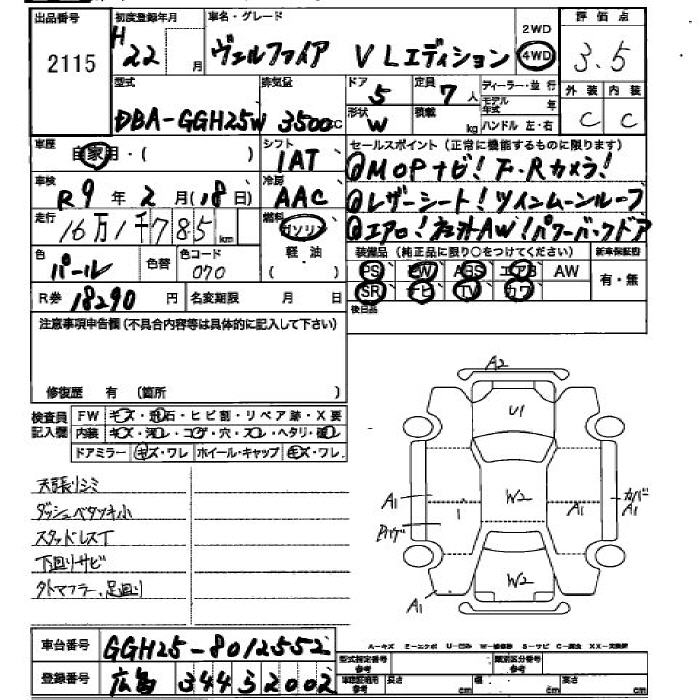 出品番号 初度登録年月 車名・グレード 2WD 評価点
2115 H22 月 ヴェルファイア VLエディション 4WD 3.5
型式 排気量 ドア 定員 ディーラー・並行 外装 内装
DBA-GGH25W 3500cc 5 7人 モデル年式 年 C C
形状 積載
W kg ハンドル 左・右
車歴 自家用・( ) シフト セールスポイント(正常に機能するものに限ります)
1AT ①MOPナビ!F.Rカメラ!
車検 R9年2月(18日) 冷房 AAC ②レザーシート!ツインムーンルーフ
走行 16万1千785km 燃料 ガソリン ③エアロ!社外AW!パワーバックドア
軽・油
色 パール 色替 色コード 070 装備品(純正品に限り○をつけてください) 新車保証書
PS PW ABS エアB AW 有・無
R券 18290円 名変期限 月 日 SR ナビ TV カワ
後日品
注意事項申告欄(不具合内容等は具体的に記入して下さい)
修復歴 有 (箇所 )
検査員記入欄 FW キズ・飛石・ヒビ割・リペア跡・X要
内装 キズ・汚レ・コゲ・穴・スレ・ヘタリ・破レ
ドアミラー キズ・ワレ ホイール・キャップ キズ・ワレ
天張リシミ
ダッシュベタツキ小
スタッドレスT
下回リサビ
タトマフラー、足廻リ
A2
U1
A1 W2 A1 カバーA1
1
W2
A1
車台番号 GGH25-8012552
A-キズ E-エクボ U-凹み W-補修跡 S-サビ C-腐食 XX-交換済
登録番号 広島 344 ス 2002
型式指定番号参考 類別区分番号参考
車検証期用参考 長さ cm 幅 cm 高さ cm